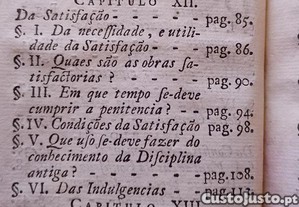 CAPITULO XII.
Da Satisfação - - - - pag. 85.
§. I. Da neceſſidade , e utili-
dade da Satisfação - - pag. 86.
§. II. Quaes são as obras ſa-
tisfactorias ? - - - pag. 90.
§. III. Em que tempo ſe-deve
cumprir a penitencia ? - pag. 94.
§. IV. Condições da Satisfação pag. 98.
§. V. Que uſo ſe-deve fazer do
conhecimento da Diſciplina
antiga ? - - - - pag. 108.
§. VI. Das Indulgencias - - pag. 113.
CAPITULO XIII
Custojusto.pt